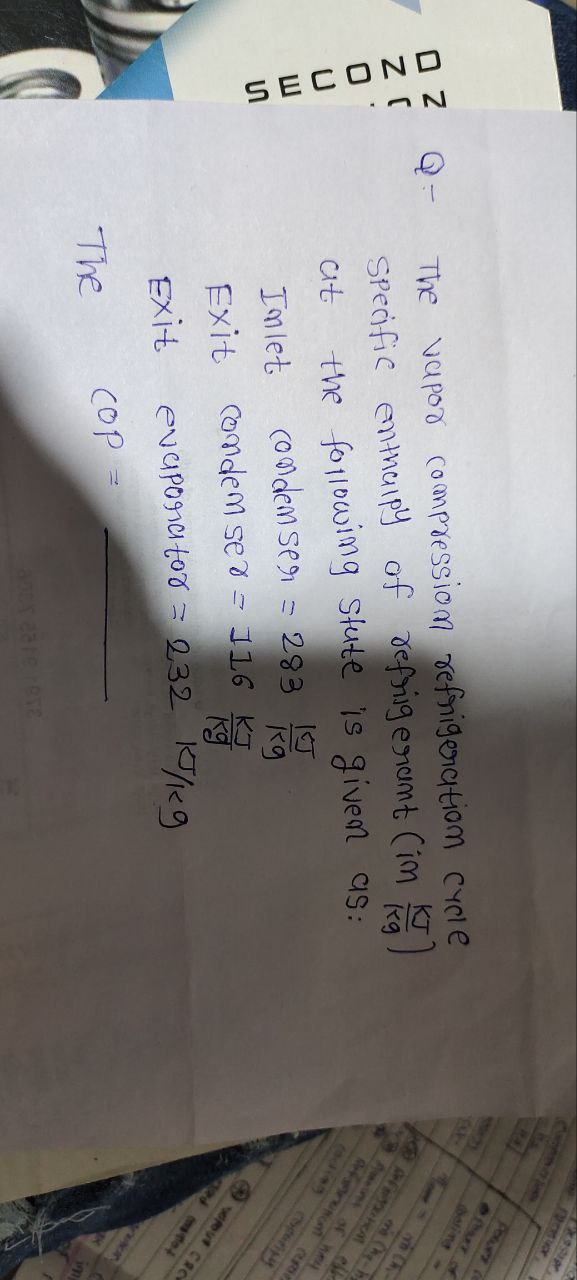 SECOND
Q:- The vapor compression refrigeration cycle
specific enthalpy of refrigerant (in KJ/kg)
at the following state is given as:
Inlet condenser = 283 KJ/kg
Exit condenser = 116 KJ/kg
Exit evaporator = 232 KJ/kg
The COP = ______